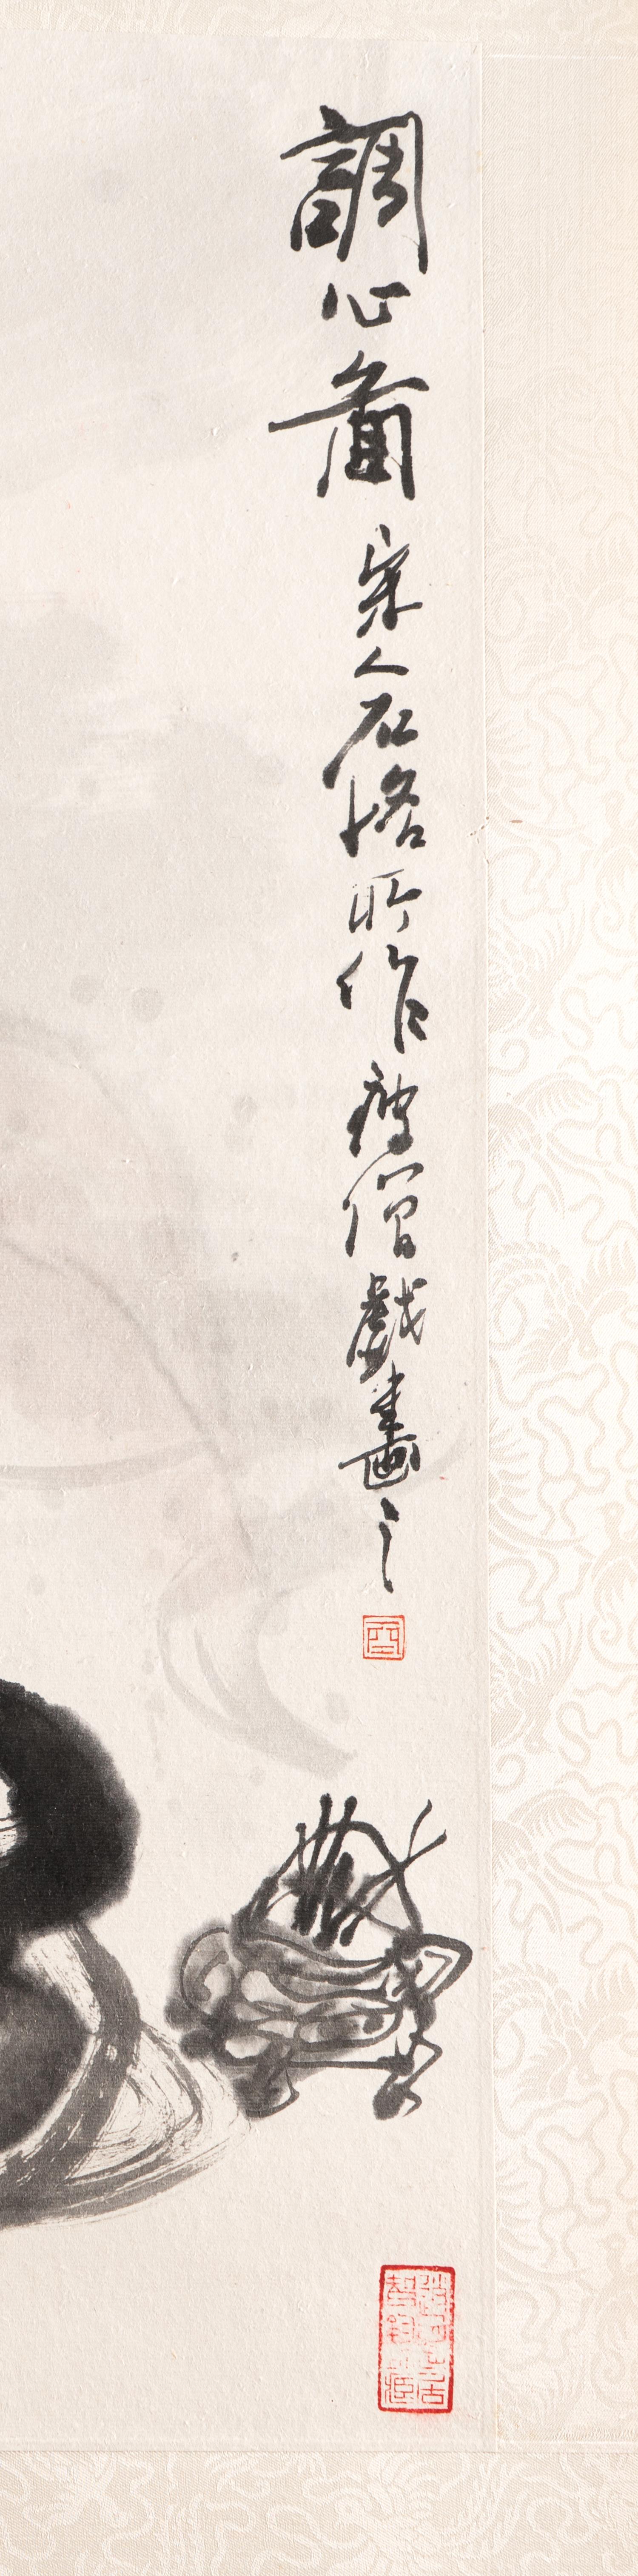 調心圖宋人石恪所作瘦僧戲畫之